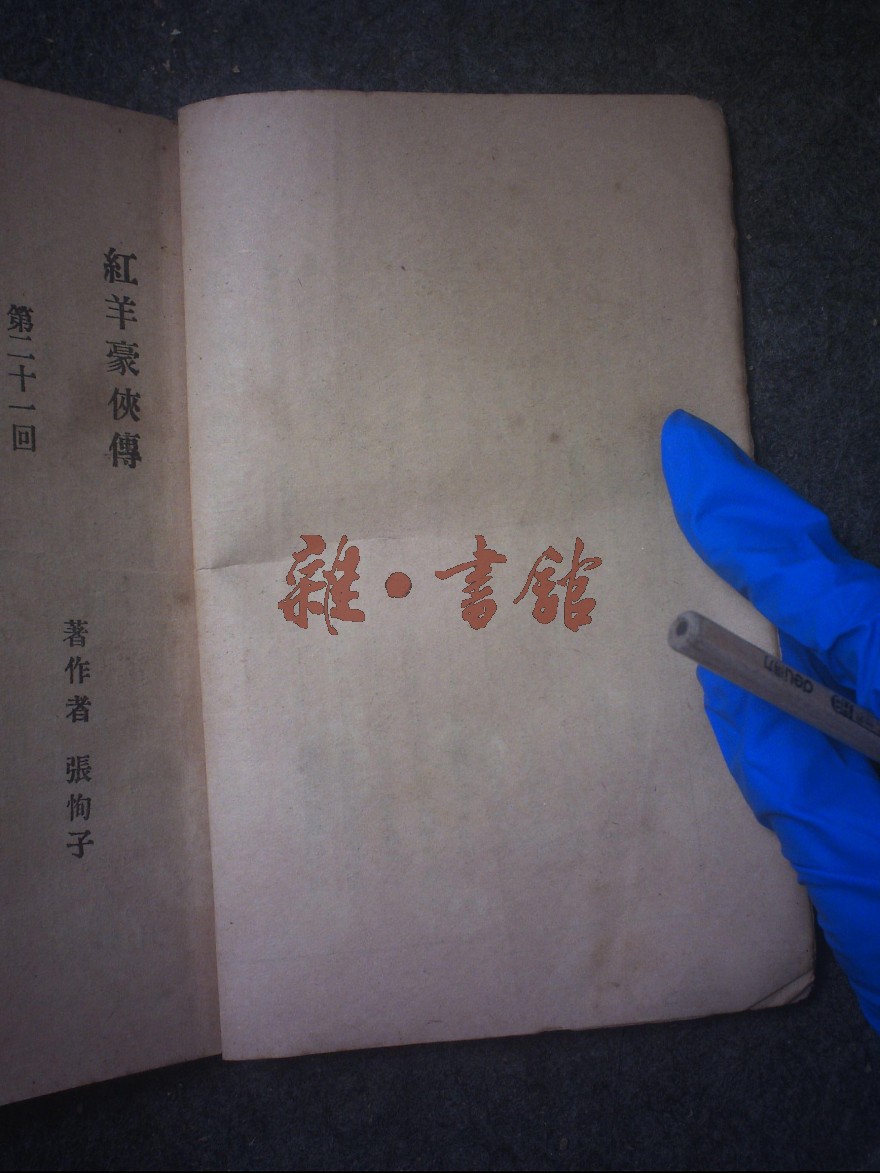 紅羊豪俠傳
著作者 張恂子
第二十一回
雜·書館
deuan